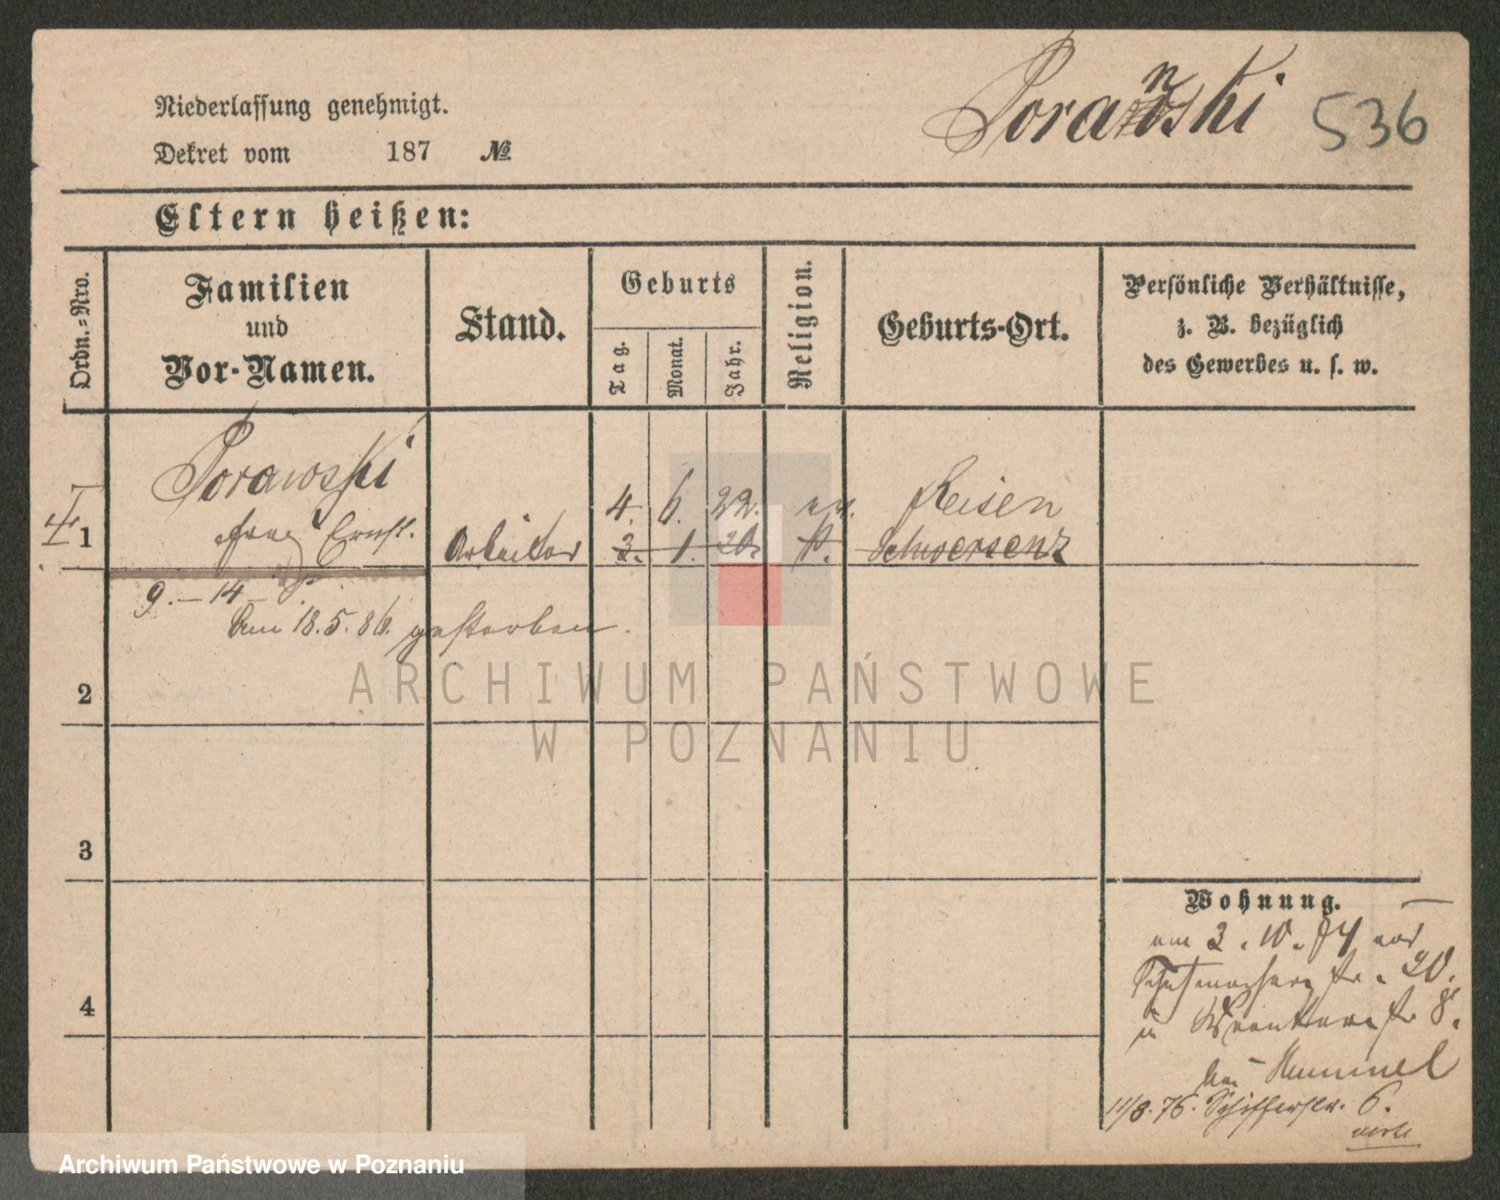 Niederlassung genehmigt.
Dekret vom 187 №
Poranski 536
Eltern heißen:
Ordn.-Nro.
Familien
und
Vor-Namen.
Stand.
Geburts
Tag.
Monat.
Jahr.
Religion.
Geburts-Ort.
Persönliche Verhältnisse,
z. B. bezüglich
des Gewerbes u. s. w.
Porawski
4. 6. 22. ev. Reisen
1 Ernst. Arbeiter 3. 1. k. Schwersenz
9. – 14 –
Am 18.5.86. gestorben.
2
3
4
Wohnung.
am 3. 10. 74 aus
Schuhmacherstr. 20.
n 8.
bei Hummel
11/8.76. Schifferstr. 6.
ARCHIWUM PAŃSTWOWE
W POZNANIU
Archiwum Państwowe w Poznaniu